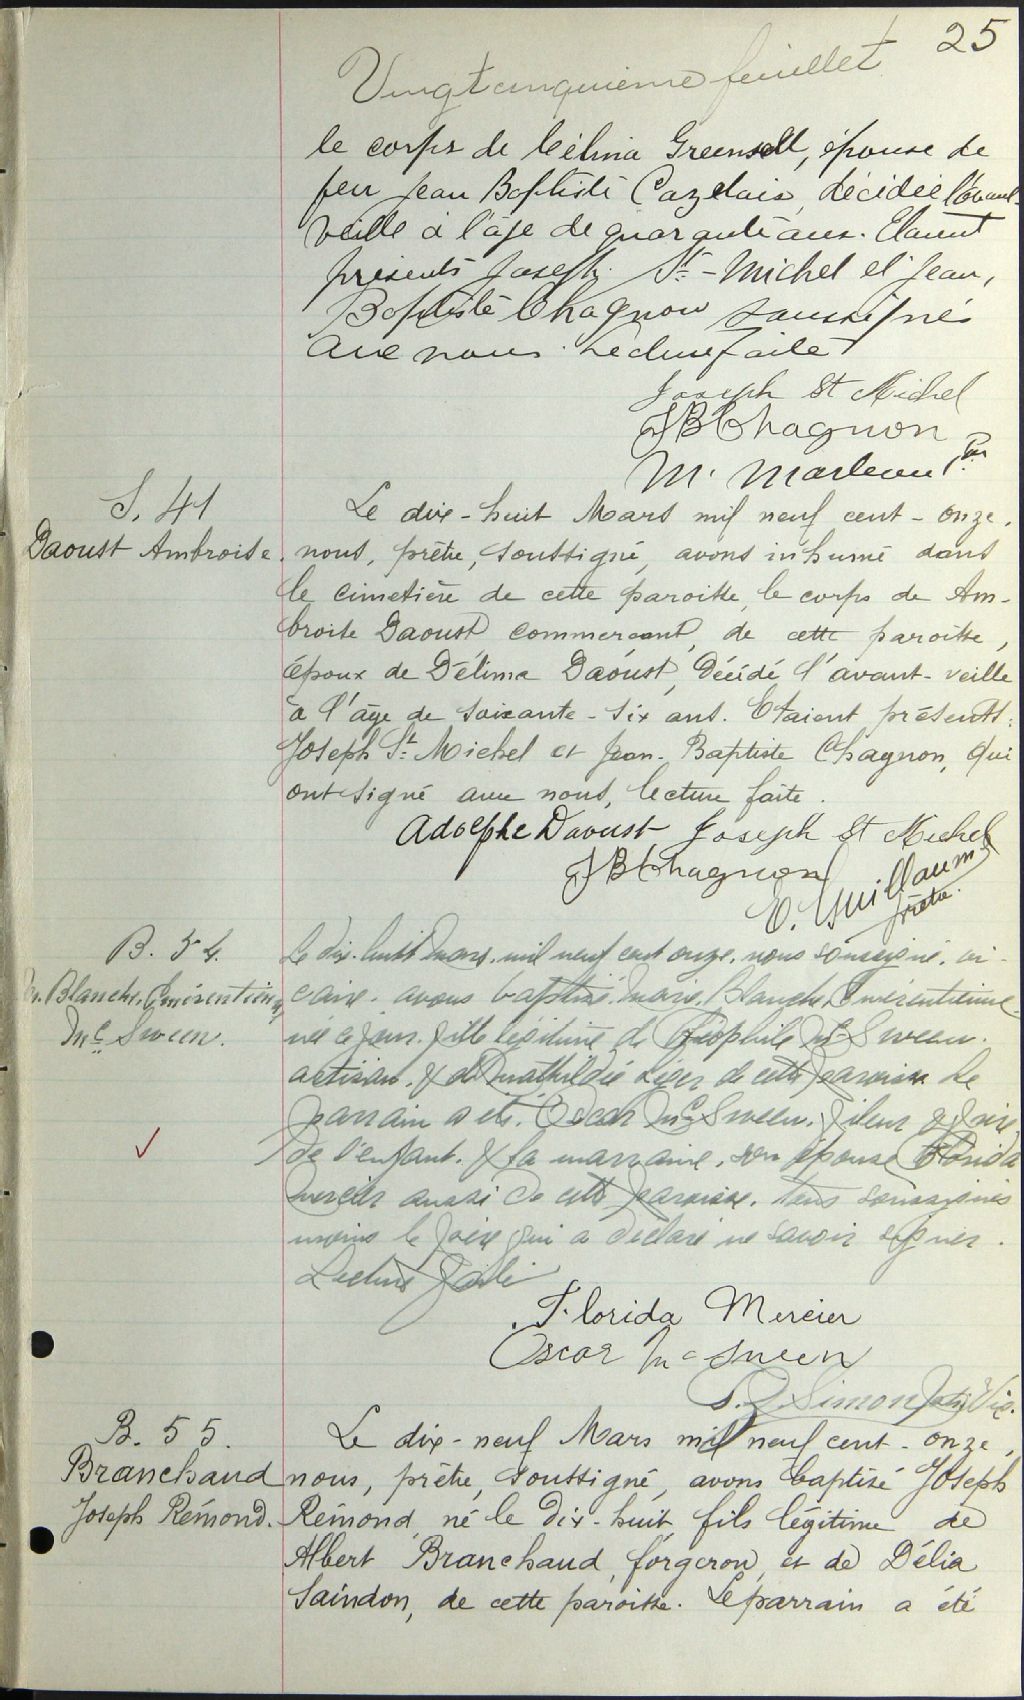 25
Vingt cinquième feuillet
le corps de Célina Greensell, épouse de
feu Jean Baptiste Cazelais, décédée l'avant-
veille à l'âge de quarante ans. Etaient
présents Joseph St-Michel et Jean,
Baptiste Chagnon soussignés
avec nous. Lecture faite
Joseph St Michel
JB Chagnon
M. Marleau Ptre
S. 41
Daoust Ambroise.
Le dix-huit Mars mil neuf cent-onze,
nous, prêtre, soussigné, avons inhumé dans
le cimetière de cette paroisse, le corps de Am-
broise Daoust commerçant, de cette paroisse,
époux de Délima Daoust, décédé l'avant-veille
à l'âge de soixante-six ans. Etaient présents:
Joseph St Michel et Jean-Baptiste Chagnon, qui
ont signé avec nous, lecture faite.
Adolphe Daoust Joseph St Michel
JB Chagnon
E. Guillaum
prêtre.
B. 54.
M. Blanche, Emérentienne
Mc Sween.
Le dix-huit Mars. mil neuf cent onze, nous soussigné, vi-
caire. avons baptisé. Marie, Blanche, Emérentienne
née ce jour, fille légitime de Théophile Mc Sween.
artisan. & de Mathildée Léger de cette paroisse Le
parrain a été. Oscar Mc Sween. & frère
de l'enfant. & la marraine, son épouse Florida
Mercier aussi de cette paroisse. tous soussignés
moins le père qui a déclaré ne savoir signer.
Lecture faite
Florida Mercier
Oscar Mc Sween
Simon Ptre Vic.
B. 55.
Branchaud
Joseph Rémond.
Le dix-neuf Mars mil neuf cent-onze,
nous, prêtre, soussigné, avons baptisé Joseph
Rémond, né le dix-huit, fils légitime de
Albert Branchaud, forgeron, et de Délia
Saindon, de cette paroisse. Le parrain a été